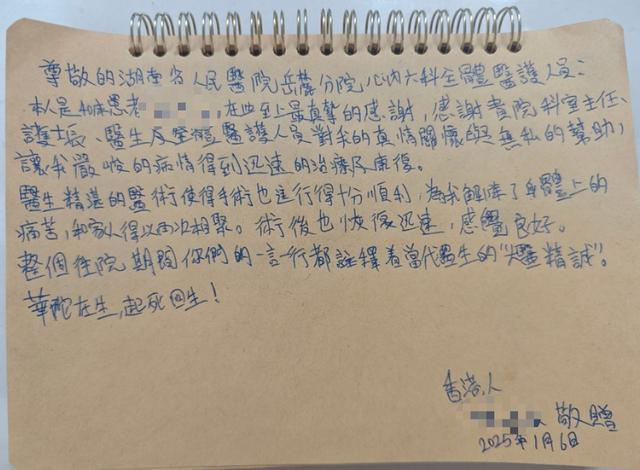 尊敬的湖南省人民醫院岳麓分院心內六科全體醫護人員:
本人是40床患者,在此至上最真摯的感謝,感謝貴院科室主任、
護士長、醫生及全體醫護人員對我的真情關懷與無私的幫助,
讓我嚴峻的病情得到迅速的治療及康復。
醫生精湛的醫術使得手術也進行得十分順利,為我解除了身體上的
病苦,和家人得以再次相聚。術後也恢復迅速,感覺良好。
整個住院期間你們的一言一行都詮釋着當代醫生的"大醫精誠"。
華佗在生,起死回生!
香港人
敬贈
2025年1月6日